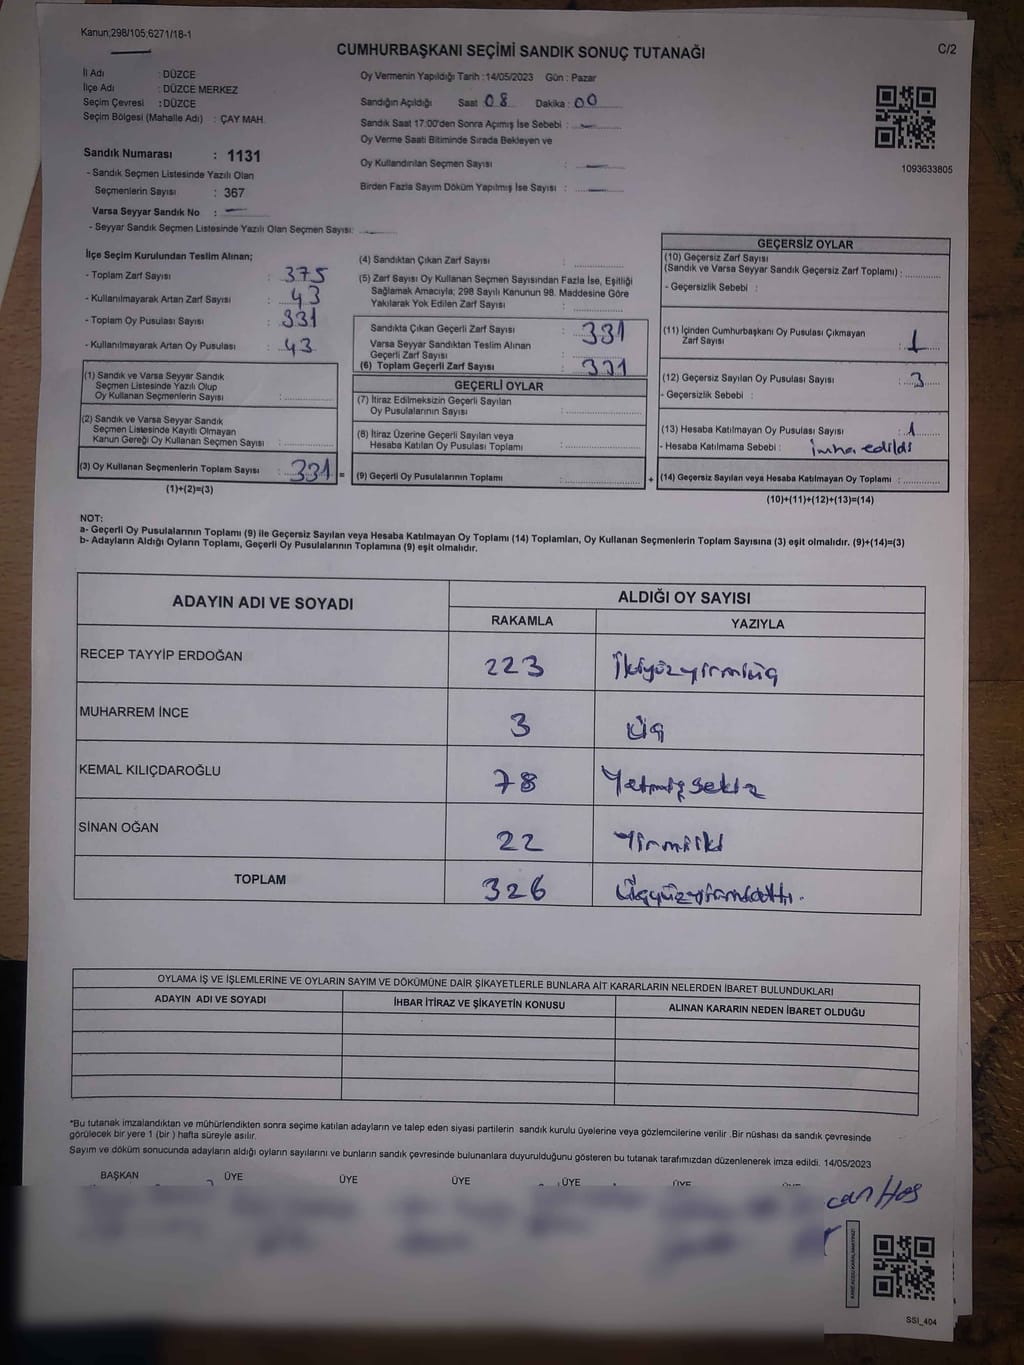 Kanun;298/105;6271/18-1
CUMHURBAŞKANI SEÇİMİ SANDIK SONUÇ TUTANAĞI
C/2
İl Adı : DÜZCE
İlçe Adı : DÜZCE MERKEZ
Seçim Çevresi : DÜZCE
Seçim Bölgesi (Mahalle Adı) : ÇAY MAH.
Sandık Numarası : 1131
- Sandık Seçmen Listesinde Yazılı Olan
Seçmenlerin Sayısı : 367
Varsa Seyyar Sandık No :
- Seyyar Sandık Seçmen Listesinde Yazılı Olan Seçmen Sayısı:
Oy Vermenin Yapıldığı Tarih :14/05/2023 Gün : Pazar
Sandığın Açıldığı Saat : 08 Dakika : 00
Sandık Saat 17:00'den Sonra Açımış İse Sebebi :
Oy Verme Saati Bitiminde Sırada Bekleyen ve
Oy Kullandırılan Seçmen Sayısı :
Birden Fazla Sayım Döküm Yapılmış İse Sayısı :
1093633805
İlçe Seçim Kurulundan Teslim Alınan;
- Toplam Zarf Sayısı : 375
- Kullanılmayarak Artan Zarf Sayısı : 43
- Toplam Oy Pusulası Sayısı : 331
- Kullanılmayarak Artan Oy Pusulası : 43
(1) Sandık ve Varsa Seyyar Sandık
Seçmen Listesinde Yazılı Olup
Oy Kullanan Seçmenlerin Sayısı :
(2) Sandık ve Varsa Seyyar Sandık
Seçmen Listesinde Kayıtlı Olmayan
Kanun Gereği Oy Kullanan Seçmen Sayısı :
(3) Oy Kullanan Seçmenlerin Toplam Sayısı : 331 =
(1)+(2)=(3)
(4) Sandıktan Çıkan Zarf Sayısı :
(5) Zarf Sayısı Oy Kullanan Seçmen Sayısından Fazla İse, Eşitliği
Sağlamak Amacıyla; 298 Sayılı Kanunun 98. Maddesine Göre
Yakılarak Yok Edilen Zarf Sayısı :
Sandıkta Çıkan Geçerli Zarf Sayısı : 331
Varsa Seyyar Sandıktan Teslim Alınan
Geçerli Zarf Sayısı :
(6) Toplam Geçerli Zarf Sayısı : 331
GEÇERLİ OYLAR
(7) İtiraz Edilmeksizin Geçerli Sayılan
Oy Pusulalarının Sayısı :
(8) İtiraz Üzerine Geçerli Sayılan veya
Hesaba Katılan Oy Pusulası Toplamı :
(9) Geçerli Oy Pusulalarının Toplamı : +
GEÇERSİZ OYLAR
(10) Geçersiz Zarf Sayısı
(Sandık ve Varsa Seyyar Sandık Geçersiz Zarf Toplamı) :
- Geçersizlik Sebebi :
(11) İçinden Cumhurbaşkanı Oy Pusulası Çıkmayan
Zarf Sayısı : 1
(12) Geçersiz Sayılan Oy Pusulası Sayısı : 3
- Geçersizlik Sebebi :
(13) Hesaba Katılmayan Oy Pusulası Sayısı : 1
- Hesaba Katılmama Sebebi : imha edildi
(14) Geçersiz Sayılan veya Hesaba Katılmayan Oy Toplamı :
(10)+(11)+(12)+(13)=(14)
NOT:
a- Geçerli Oy Pusulalarının Toplamı (9) ile Geçersiz Sayılan veya Hesaba Katılmayan Oy Toplamı (14) Toplamları, Oy Kullanan Seçmenlerin Toplam Sayısına (3) eşit olmalıdır. (9)+(14)=(3)
b- Adayların Aldığı Oyların Toplamı, Geçerli Oy Pusulalarının Toplamına (9) eşit olmalıdır.
ADAYIN ADI VE SOYADI
ALDIĞI OY SAYISI
RAKAMLA YAZIYLA
RECEP TAYYİP ERDOĞAN 223 İkiyüzyirmiüç
MUHARREM İNCE 3 Üç
KEMAL KILIÇDAROĞLU 78 Yetmişsekiz
SİNAN OĞAN 22 Yirmiiki
TOPLAM 326 Üçyüzyirmialtı.
OYLAMA İŞ VE İŞLEMLERİNE VE OYLARIN SAYIM VE DÖKÜMÜNE DAİR ŞİKAYETLERLE BUNLARA AİT KARARLARIN NELERDEN İBARET BULUNDUKLARI
ADAYIN ADI VE SOYADI İHBAR İTİRAZ VE ŞİKAYETİN KONUSU ALINAN KARARIN NEDEN İBARET OLDUĞU
*Bu tutanak imzalandıktan ve mühürlendikten sonra seçime katılan adayların ve talep eden siyasi partilerin sandık kurulu üyelerine veya gözlemcilerine verilir .Bir nüshası da sandık çevresinde
görülecek bir yere 1 (bir ) hafta süreyle asılır.
Sayım ve döküm sonucunda adayların aldığı oyların sayılarını ve bunların sandık çevresinde bulunanlara duyurulduğunu gösteren bu tutanak tarafımızdan düzenlenerek imza edildi. 14/05/2023
BAŞKAN ÜYE ÜYE ÜYE ÜYE ÜYE
SSI_404